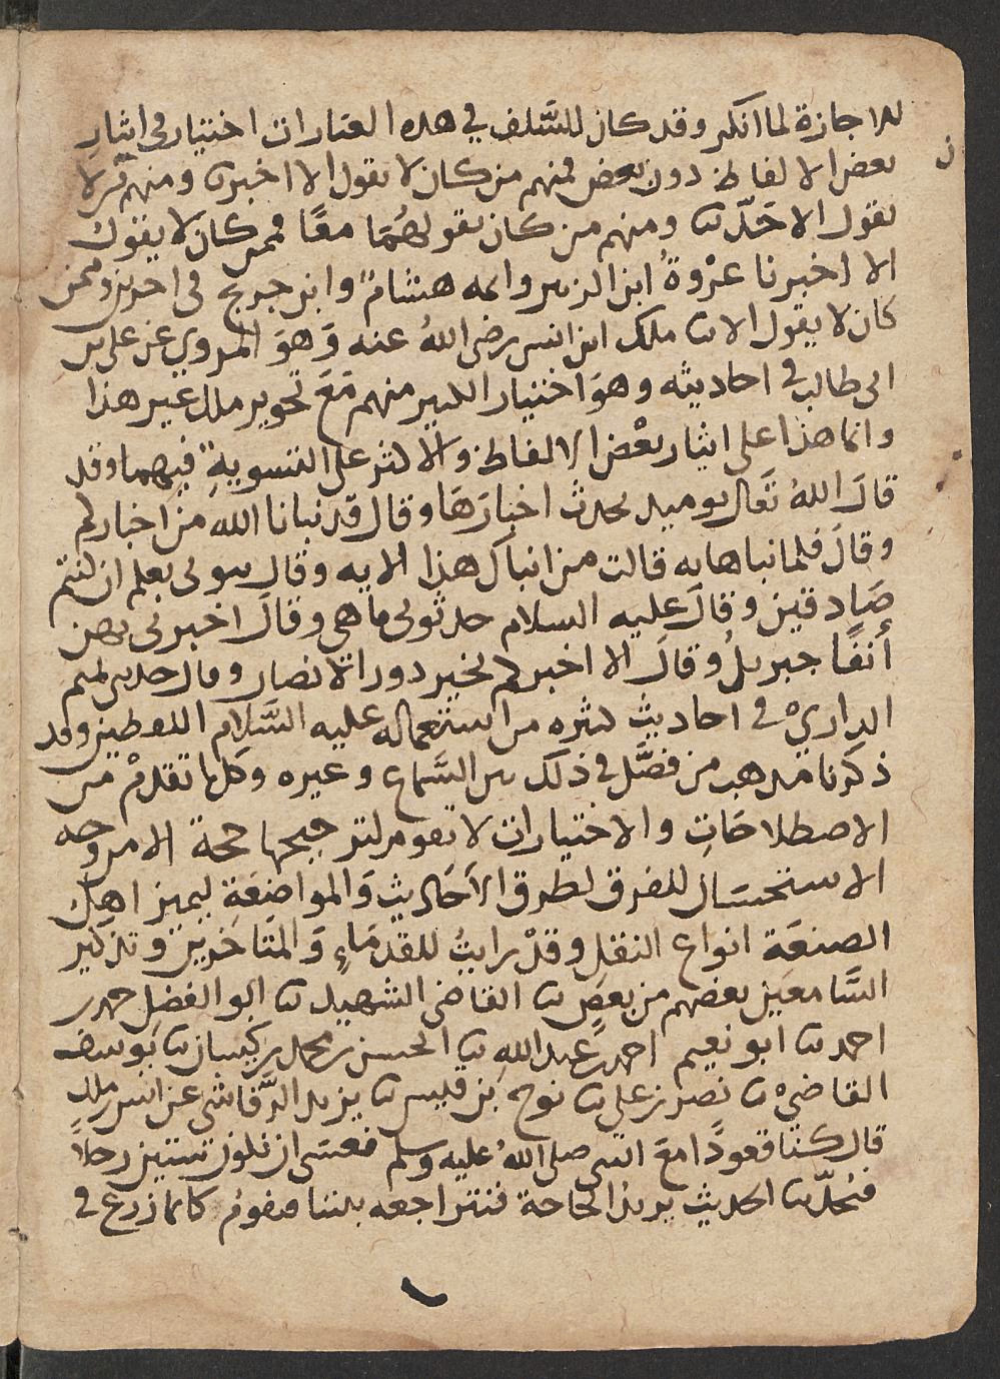 للاجازة لما انكر وقد كان للسَّلف في هذه العبارات اختيار في ايثار
بعض الالفاظ دون بعض فمنهم من كان لا يقول الا اخبرنا ومنهم من لا
يقول الا حَدّثنا ومنهم من كان يقولهُمَا معًا فممن كان لا يقول
الا اخبرنا عرْوةُ ابن الزبير وابنه هشامٌ وابن جريج في اخرين وممن
كان لا يقول الا نا ملك ابن انس رضي اللهُ عنه وَهوَ المروي عن علي بن
ابي طالب في احاديثه وهوَ اختيار الكبير منهم مَعَ تجويز ملك غير هذا
وانما هذا على ايثار بعْض الالفاظ والاكثر على التسويةِ فيهما وقد
قالَ اللهُ تَعالى يوميذ تحدث اخبارَهَا وقال قد نبانا الله من اخباركم
وقالَ فلما نباها به قالت من انباك هذا الايه وقال نبوني بعلم ان كنتم
صَادقين وقالَ عليه السلام حدثوني ما هي وقالَ اخبرني بهن
أنفًا جبريلُ وقالَ الا اخبركم بخير دور الانصار وقال حدثني تميم
الداريْ في احاديث كثيره من استعماله عليه السَّلام اللفظين وقد
ذكرنا مذهب من فصَّل في ذلك بين السَّماع وغيره وكلها تقدمْ من
الاصطلاحَاتِ والاختيارات لا تقوم لترجيحها حجة الا من وجه
الاستحسَان للفرق لطرق الاَحَاديث وَالمواضعَةِ ليميز اهل
الصنعَة انواع النقل وقدْ رايتُ للقدمَاءِ وَالمتَاخرين وتذكير
السَّامعَين بعضهم من بعضٍ نا القاضي الشهيد نا ابو الفضل حمد بن
احمد نا ابو نعيم احمد بن عبد الله نا الحسن بن محمد بن كيسان نا يوسف
القاضيْ نا نصر بن علي نا نوح بن قيس نا يزيد الرَّقاشي عن انس بن ملك
قال كنا قعودًا معَ النبي صلى اللهُ عليه وسَلم فعسَى ان نكون ستين رجلاً
فيُحدّثنا الحديث يريد الحاجة فنتراجعه بيننا فنقومُ كانما زرع في